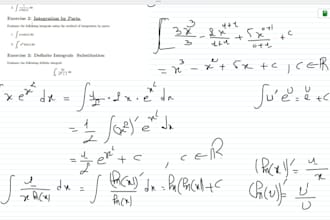 Exercise 2: Integration by Parts
Exercise 3: Definite Integrals Substitution
[3x³/3 - 2x¹⁺¹/1+1 + 5x⁰⁺¹/0+1 + c
= x³ - x² + 5x + c, c∈ℝ
x eˣ² dx = ∫ 1/2 · 2x · eˣ² dx
∫ u' eᵘ = eᵘ + c
= 1/2 ∫ (x²)' eˣ² dx
= 1/2 eˣ² + c , c∈ℝ
(ln(x))' = 1/x
∫ 1/(x ln(x)) dx = ∫ (ln(x))'/ln(x) dx = ln(ln(x)) + c
(ln(u))' = u'/u